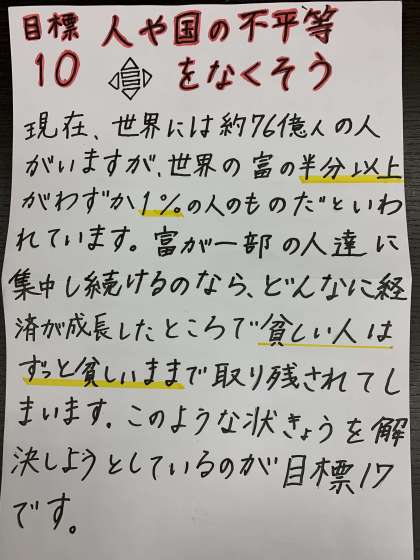 目標 人や国の不平等
10 をなくそう
現在、世界には約76億人の人
がいますが、世界の富の半分以上
がわずか1%の人のものだといわ
れています。富が一部の人達に
集中し続けるのなら、どんなに経
済が成長したところで貧しい人は
ずっと貧しいままで取り残されてし
まいます。このような状きょうを解
決しようとしているのが目標17
です。